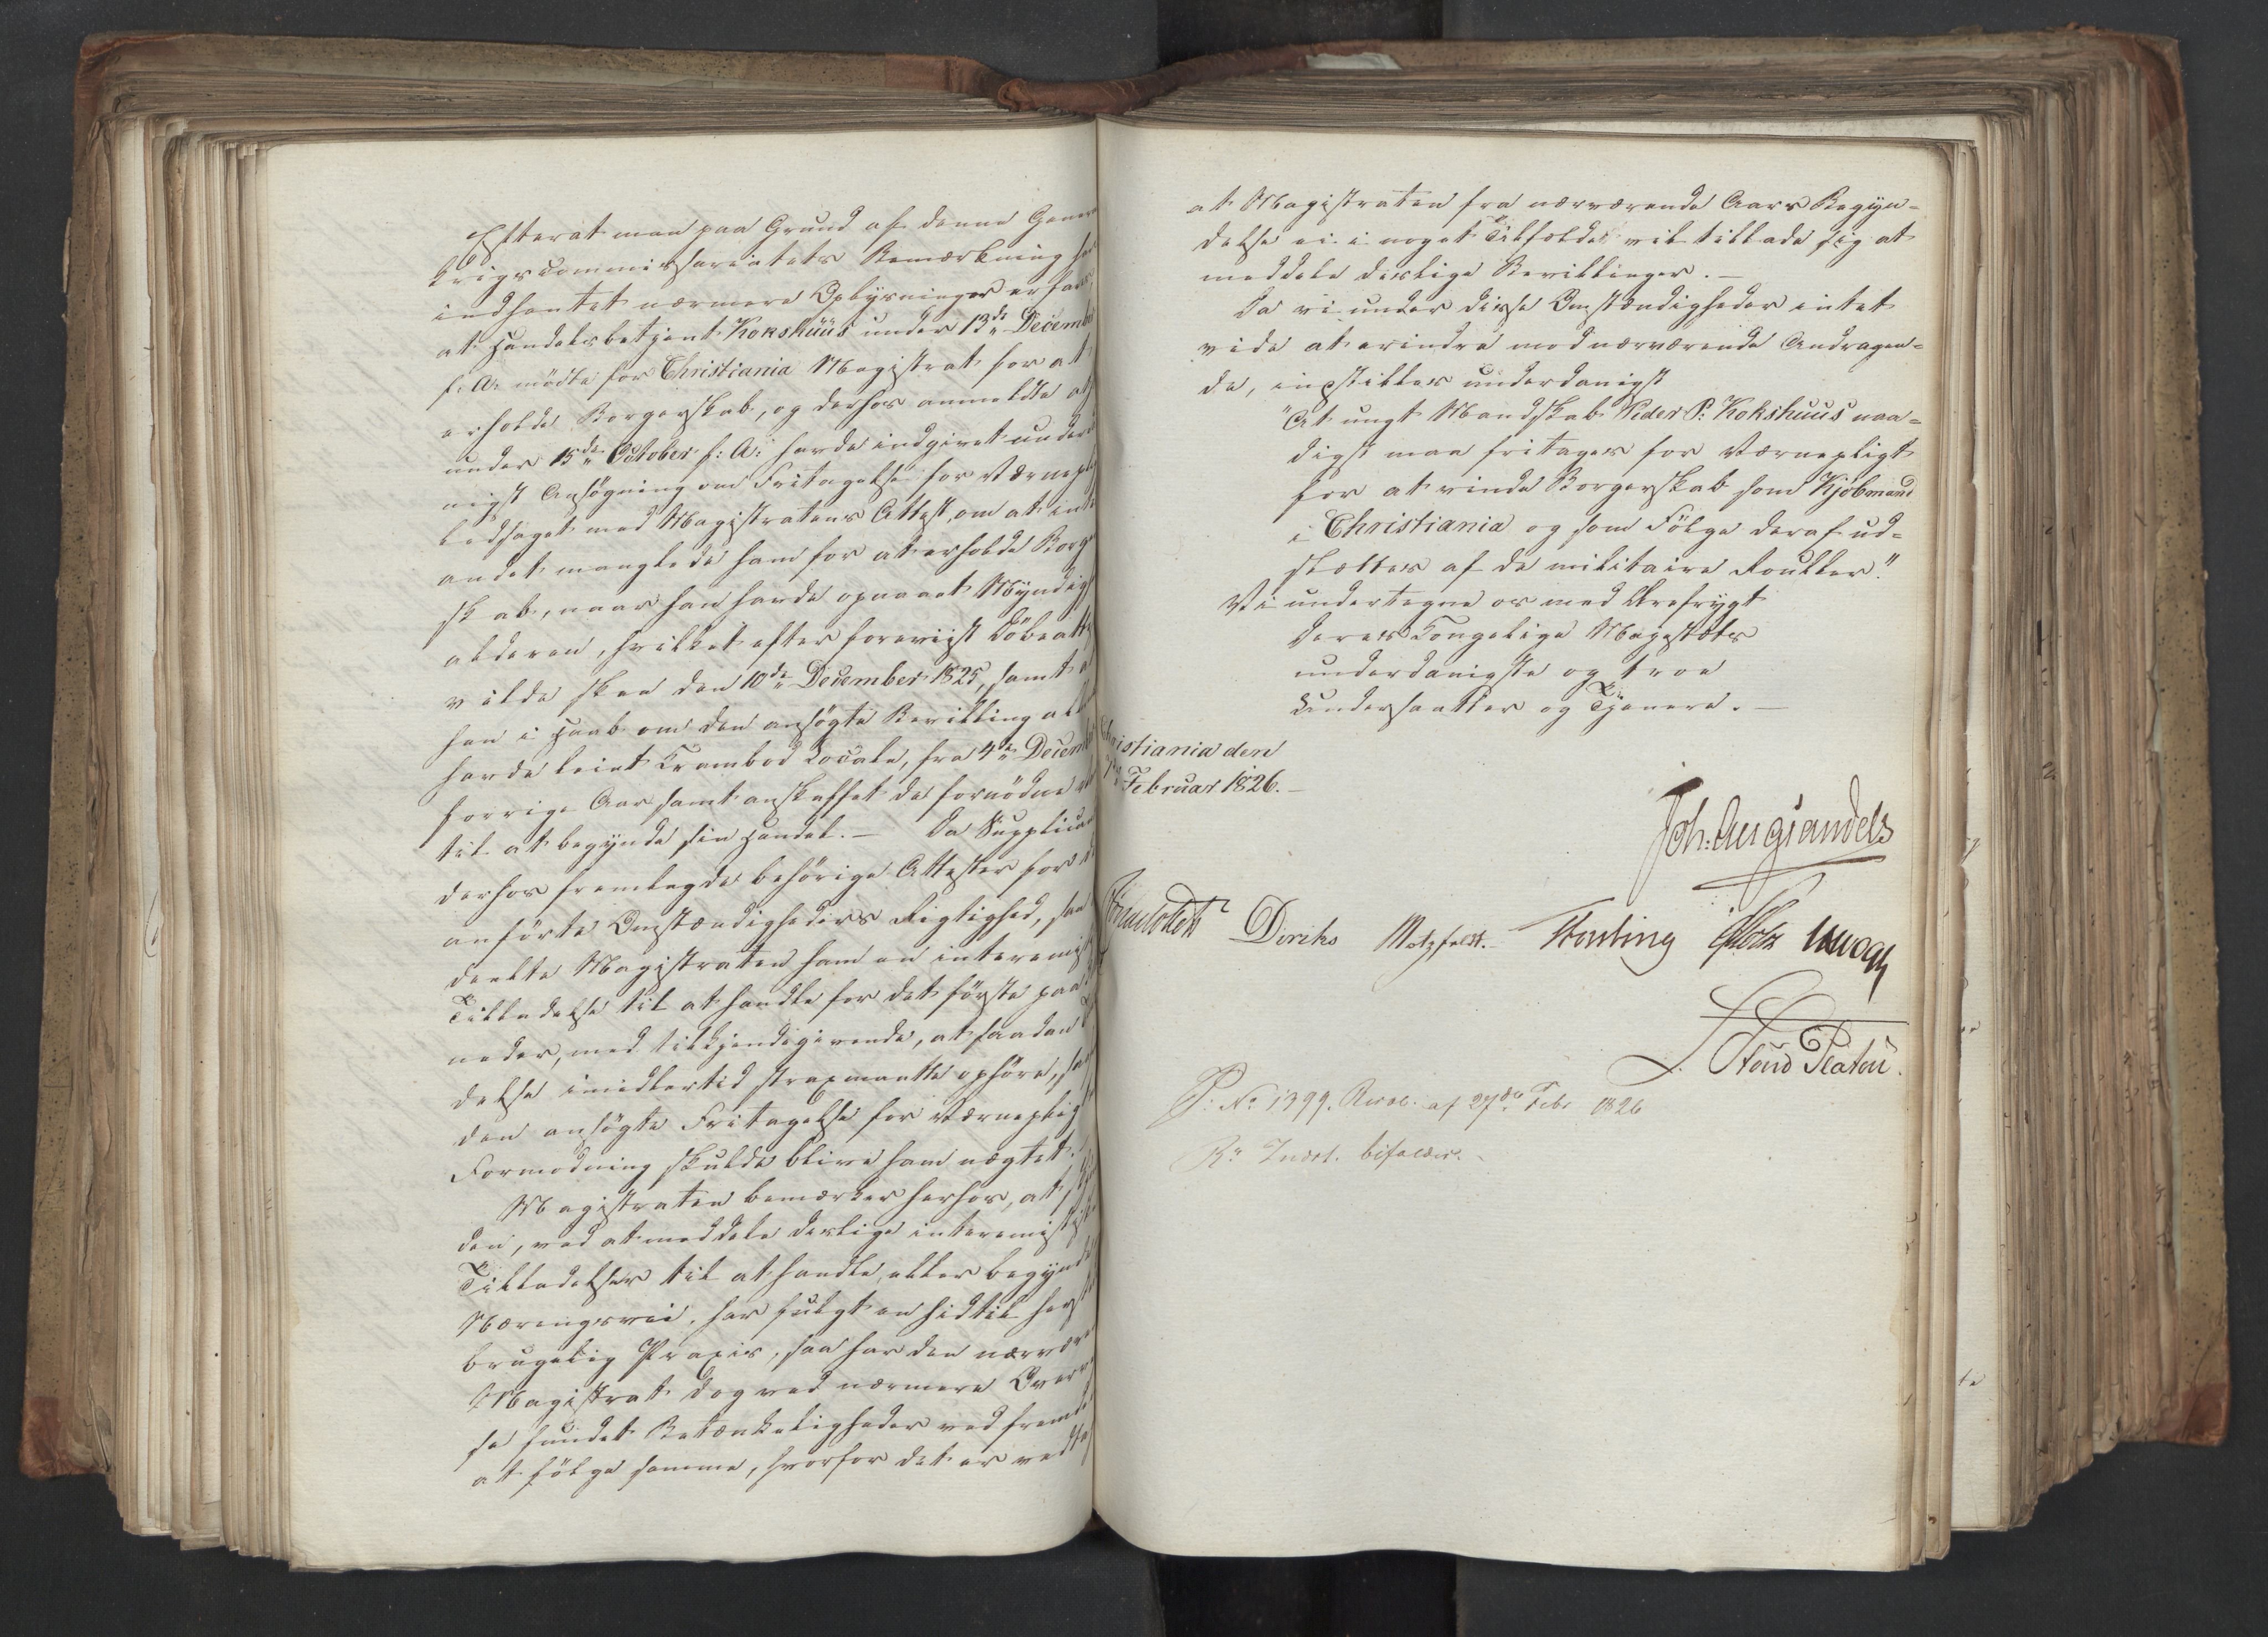 Efterat man paa Grund af denne Genera
krigscommissariatets Bemærkning ha
indhentet nærmere Oplysninger erfares,
at Handelsbetjent Kokshuus under 13de Decembe
f: A: mødte for Christiania Magistrat for at
erholde Borgerskab, og derhos anmeldte at
under 15de October f: A: havde indgivet under
nigst Ansøgning om Fritagelse for Værnepl
ledsaget med Magistratens Attest, om at int
andet manglede ham for at erholde Borge
skab, naar han havde opnaaet Myndigh
alderen, hvilket efter foreviist Døbeatt
vilde skee den 10de December 1825, samt a
han i Haab om den ansøgte Bevilling all
havde leiet Krambod Locale, fra 4de Decemb
forrige Aar samt anskaffet de fornødne
til at begynde sin Handel. – Da Supplican
derhos fremlagde behørige Attester for d
anførte Omstændigheders Rigtighed, saa
deelte Magistraten ham en interimist
Tilladelse til at handle for det første paa
neder, med tilkjendegivende, at saadan
delse imidlertid strax maatte ophøre, sa
den ansøgte Fritagelse for Værneplig
Formodning skulde blive ham nægtet.
Magistraten bemærker herhos, at
den, ved at meddele deslige interimist
Tilladelser til at handle eller begynde
Næringsvei, har fulgt en hidtil her
brugelig Praxis, saa har den nærvær
Magistrat dog ved nærmere Overv
se fundet Betænkeligheder ved fremde
at følge samme, hvorfor det er vedta
at Magistraten fra nærværende Aars Begyn=
delse ei i noget Tilfælde vil tillade sig at
meddele deslige Bevillinger. –
Da vi under disse Omstændigheder intet
vide at erindre mod nærværende Andragen=
de, indstilles underdanigst
"At ungt Mandskab Peder P: Kokshuus naa=
digst maa fritages for Værnepligt
for at vinde Borgerskab som Kjøbmand
i Christiania og som Følge deraf ud=
slettes af de militaire Roller."
Vi undertegne os med Ærefrygt
Deres Kongelige Majestæts
underdanigste og troe
Undersaatter og Tjenere. –
Christiania den
Februar 1826. –
Joh: Aug: Sandels
Diriks Motzfeldt. Fasting Krogh
Stoud Platou.
P. No 1399. Resol. af 27de Febr 1826
Rs Indst. bifaldes.